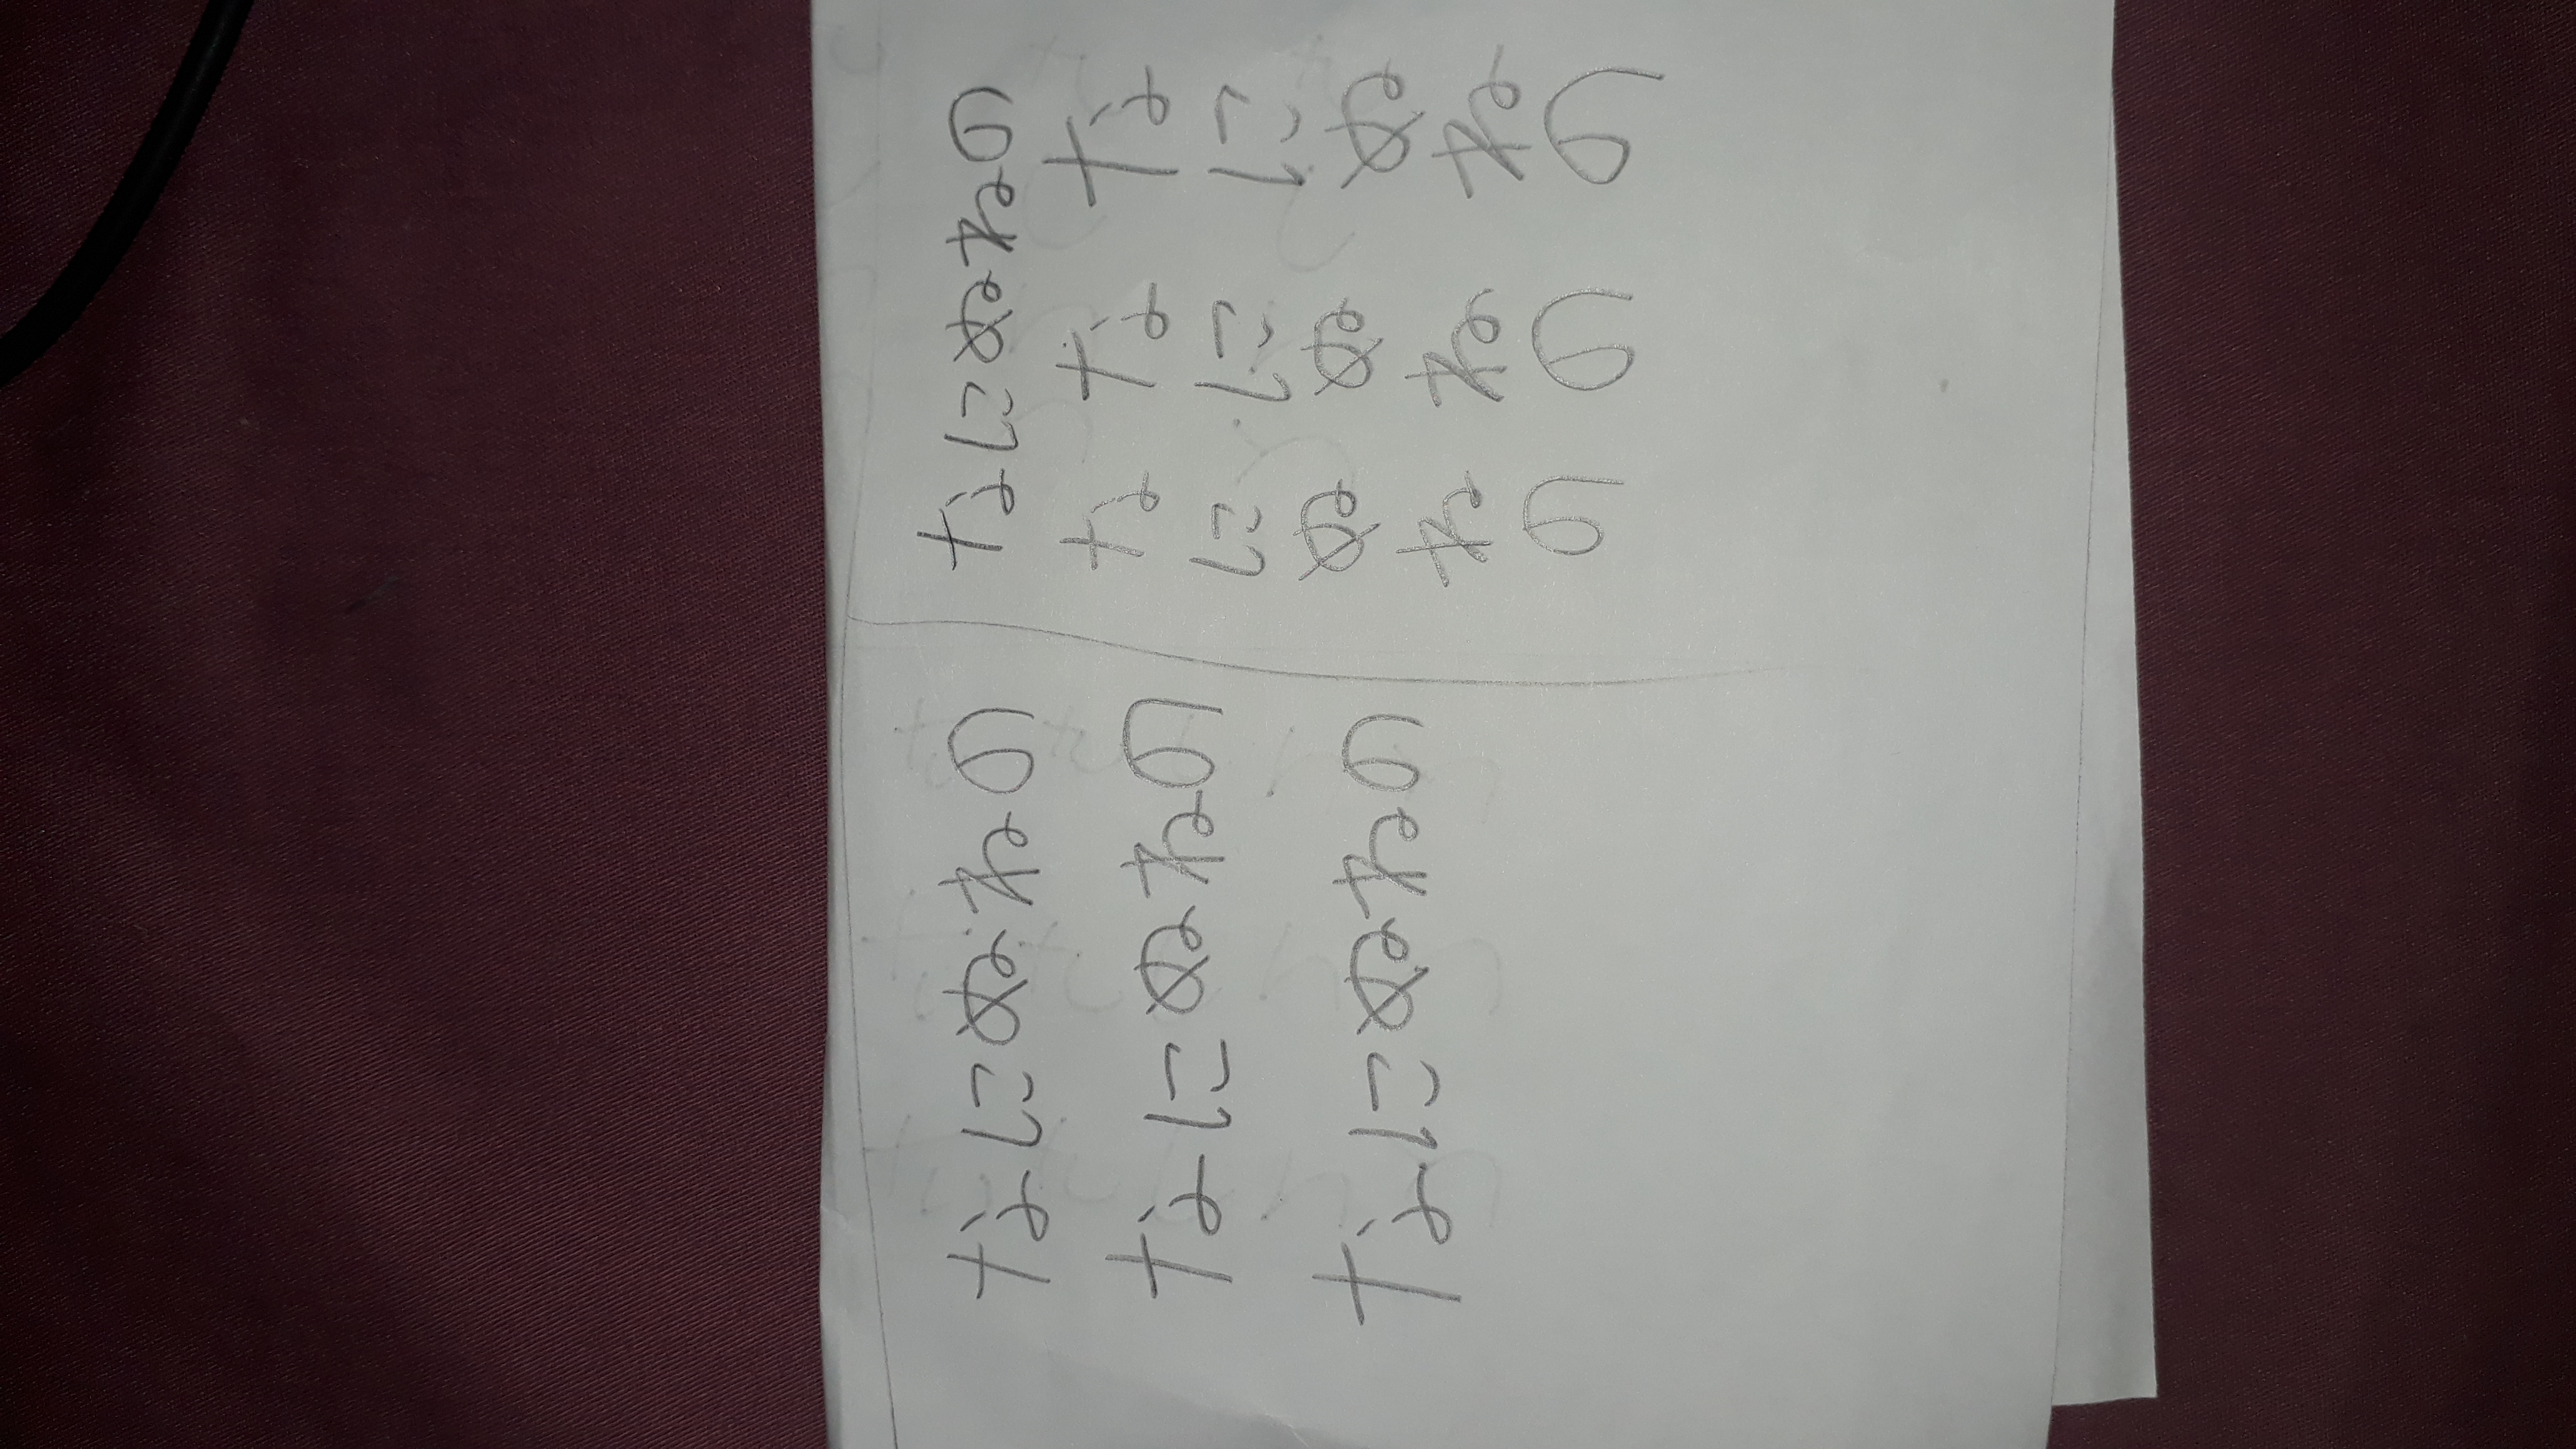 なにぬねの
なにぬねの
なにぬねの
なにぬねの
なにぬねの
なにぬねの
なにぬねの